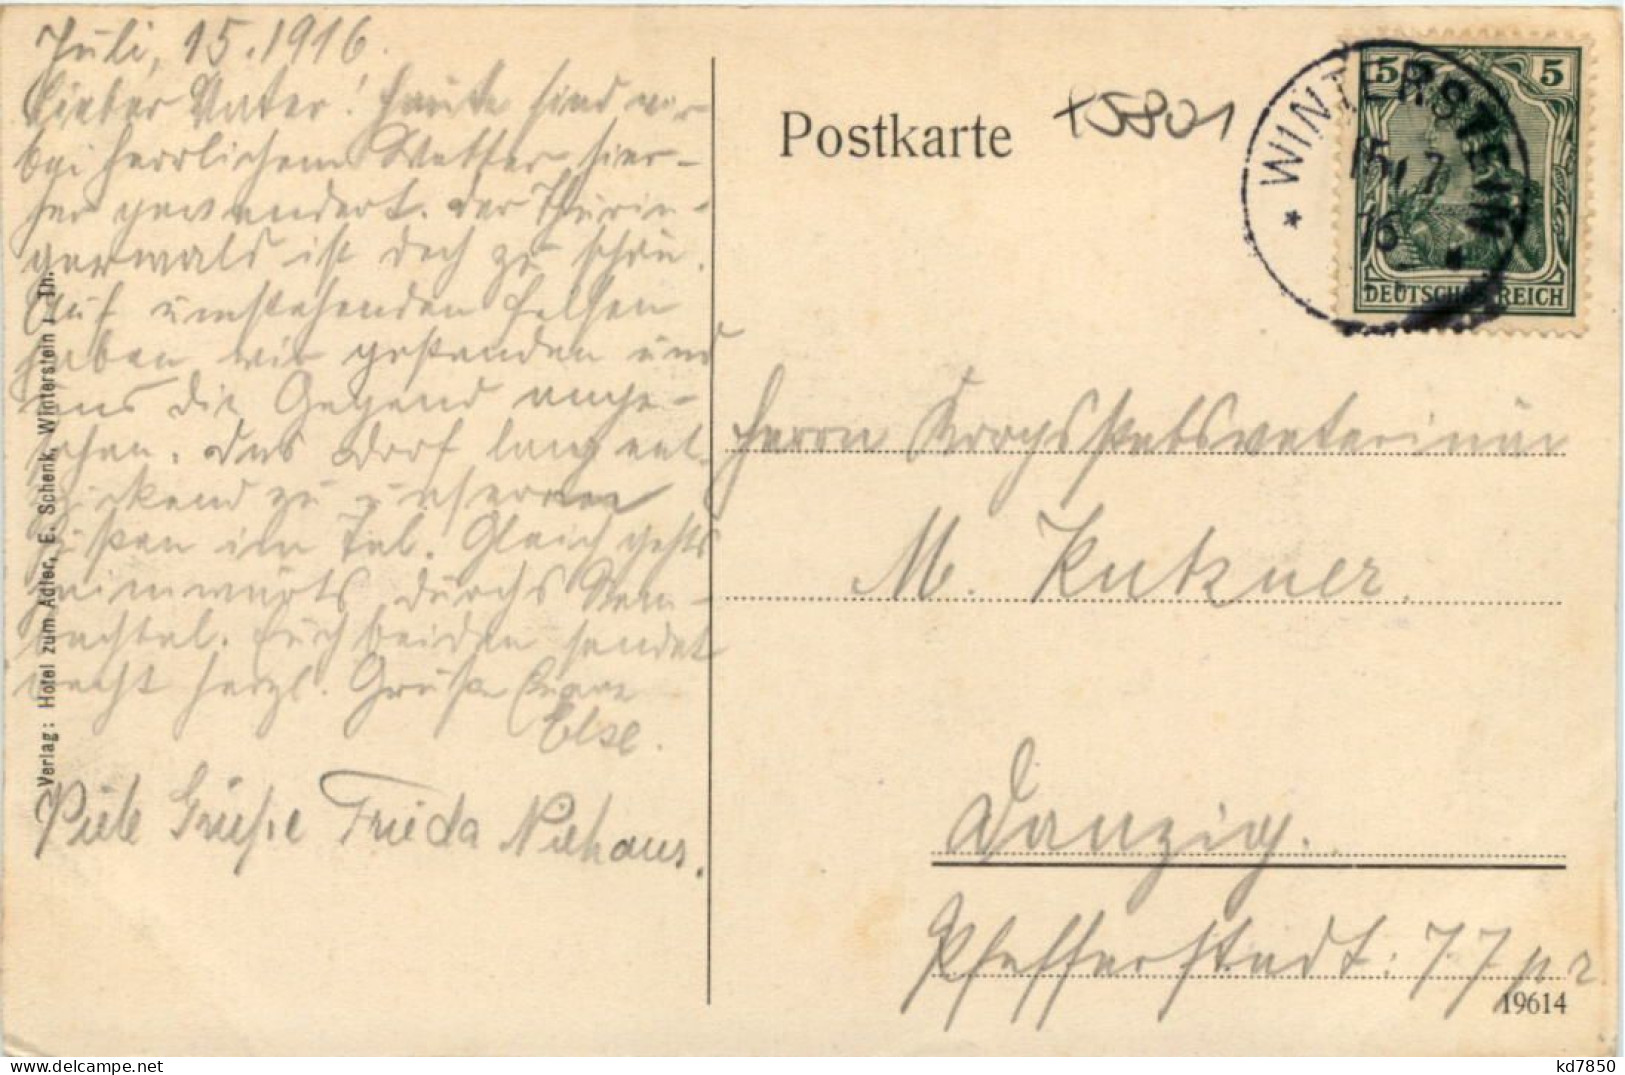 Juli, 15. 1916.
Lieber Vater! Heute sind wir
bei herrlichem Wetter hier-
her gewandert. Der Thürin-
gerwald ist doch zu schön.
Auf umstehenden Felsen
haben wir gestanden und
uns die Gegend ange-
sehen. Das Dorf lag ent-
zückend zu unseren
Füßen im Tal. Gleich gehts
heimwärts durchs
Euch beiden sendet
recht herzl. Grüße Eure
Else.
Viele Grüße Frieda Niehaus.
Verlag: Hotel zum Adler, E. Schenk, Winterstein i. Th.
Postkarte
+5801
WINTERSTEIN
15.7
16
5 5
DEUTSCHES REICH
Herrn
M. Kutzner.
Danzig.
Pfefferstadt: 77
19614
kd7850